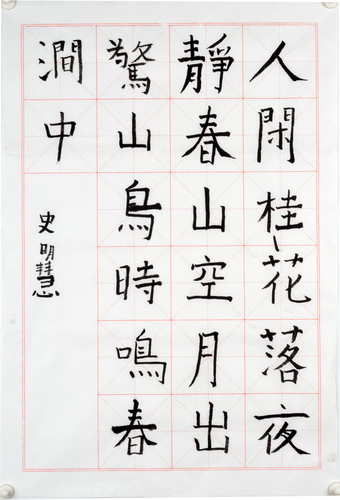 人閑桂花落夜
靜春山空月出
驚山鳥時鳴春
澗中
史明慧